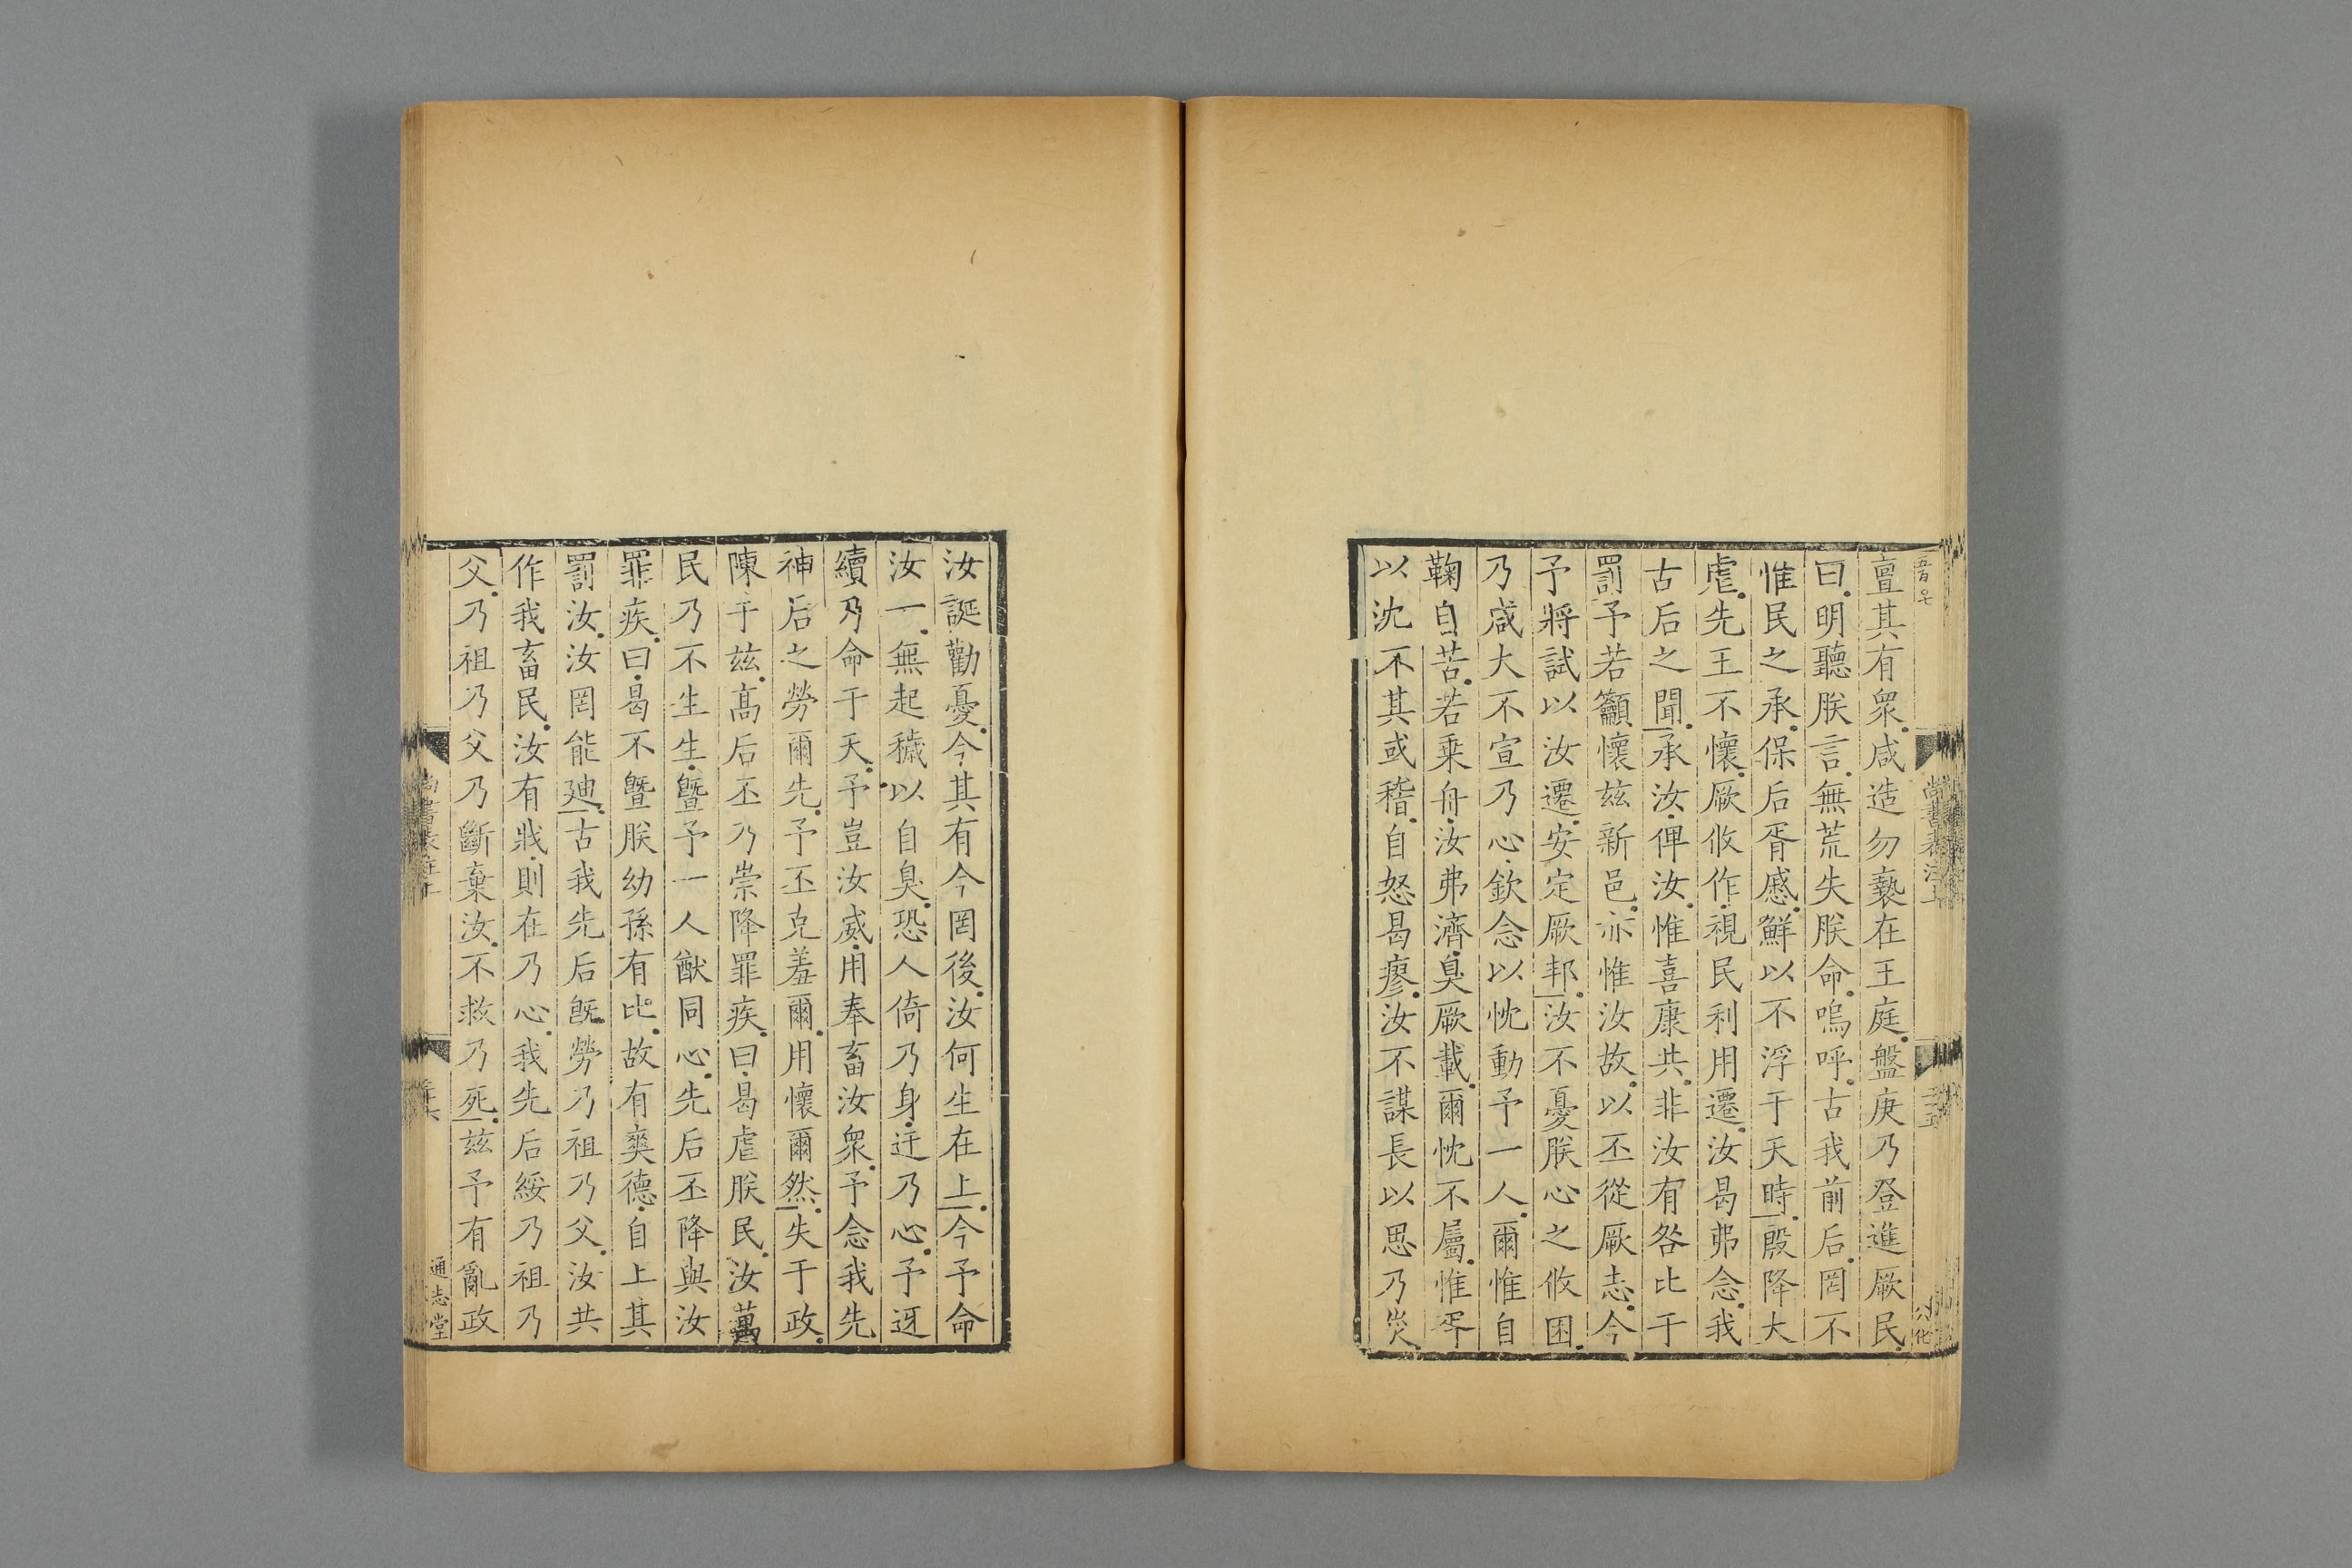 五百〇七
尚書表注上
八化
亶其有衆咸造勿褻在王庭盤庚乃登進厥民
曰明聽朕言無荒失朕命嗚呼古我前后罔不
惟民之承保后胥慼鮮以不浮于天時殷降大
虐先王不懷厥攸作視民利用遷汝曷弗念我
古后之聞承汝俾汝惟喜康共非汝有咎比于
罰予若籲懷兹新邑亦惟汝故以丕從厥志今
予將試以汝遷安定厥邦汝不憂朕心之攸困
乃咸大不宣乃心欽念以忱動予一人爾惟自
鞠自苦若乗舟汝弗濟臭厥載爾忱不屬惟胥
以沈不其或稽自怒曷瘳汝不謀長以思乃災
汝誕勸憂今其有今罔後汝何生在上今予命
汝一無起穢以自臭恐人倚乃身迂乃心予迓
續乃命于天予豈汝威用奉畜汝衆予念我先
神后之勞爾先予丕克羞爾用懷爾然失于政
陳于兹髙后丕乃崇降罪疾曰曷虐朕民汝萬
民乃不生生曁予一人猷同心先后丕降與汝
罪疾曰曷不曁朕幼孫有比故有爽德自上其
罰汝汝罔能迪古我先后旣勞乃祖乃父汝共
作我畜民汝有戕則在乃心我先后綏乃祖乃
父乃祖乃父乃斷棄汝不救乃死兹予有亂政
通志堂